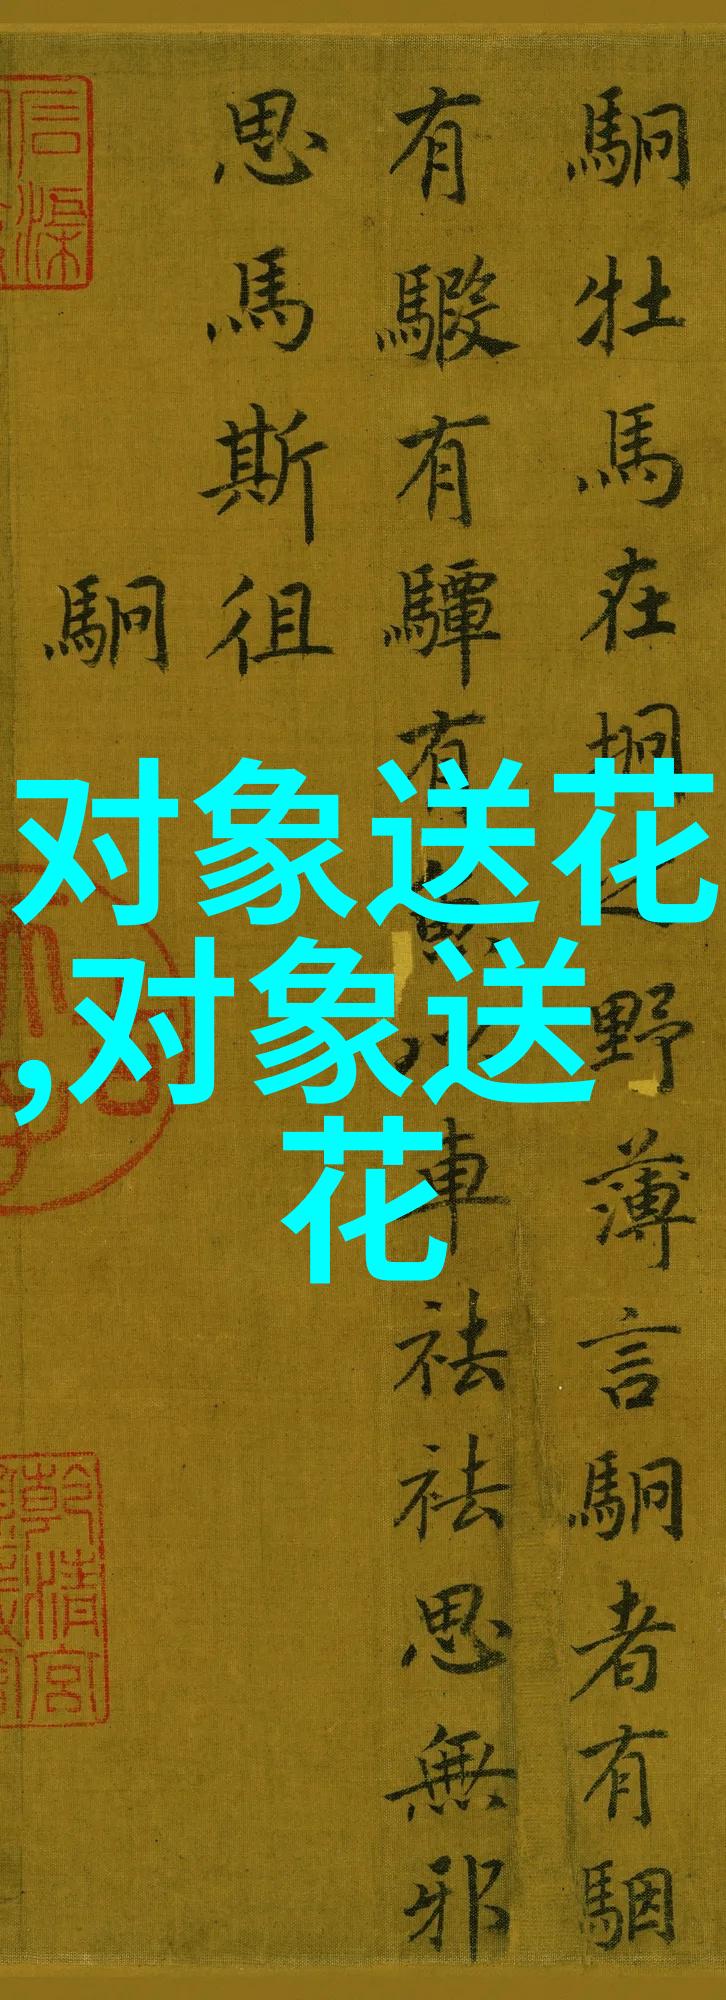 駉牡馬在坰之野薄言駉者有駰
有騢有驔有魚以車祛祛思無邪
思馬斯徂
駉
对象送花
,对象送
花
乾清宮